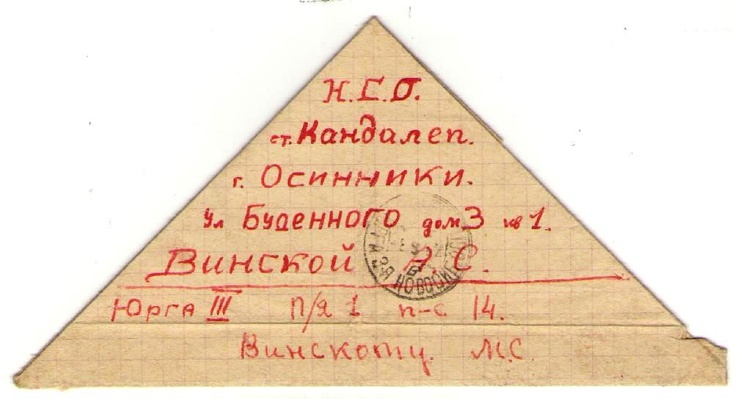 Н.С.О.
ст. Кандалеп.
г. Осинники.
ул Буденного дом 3 кв 1.
Винской А. С.
Юрга III п/я 1 п-с 14.
Винскому. М.С.